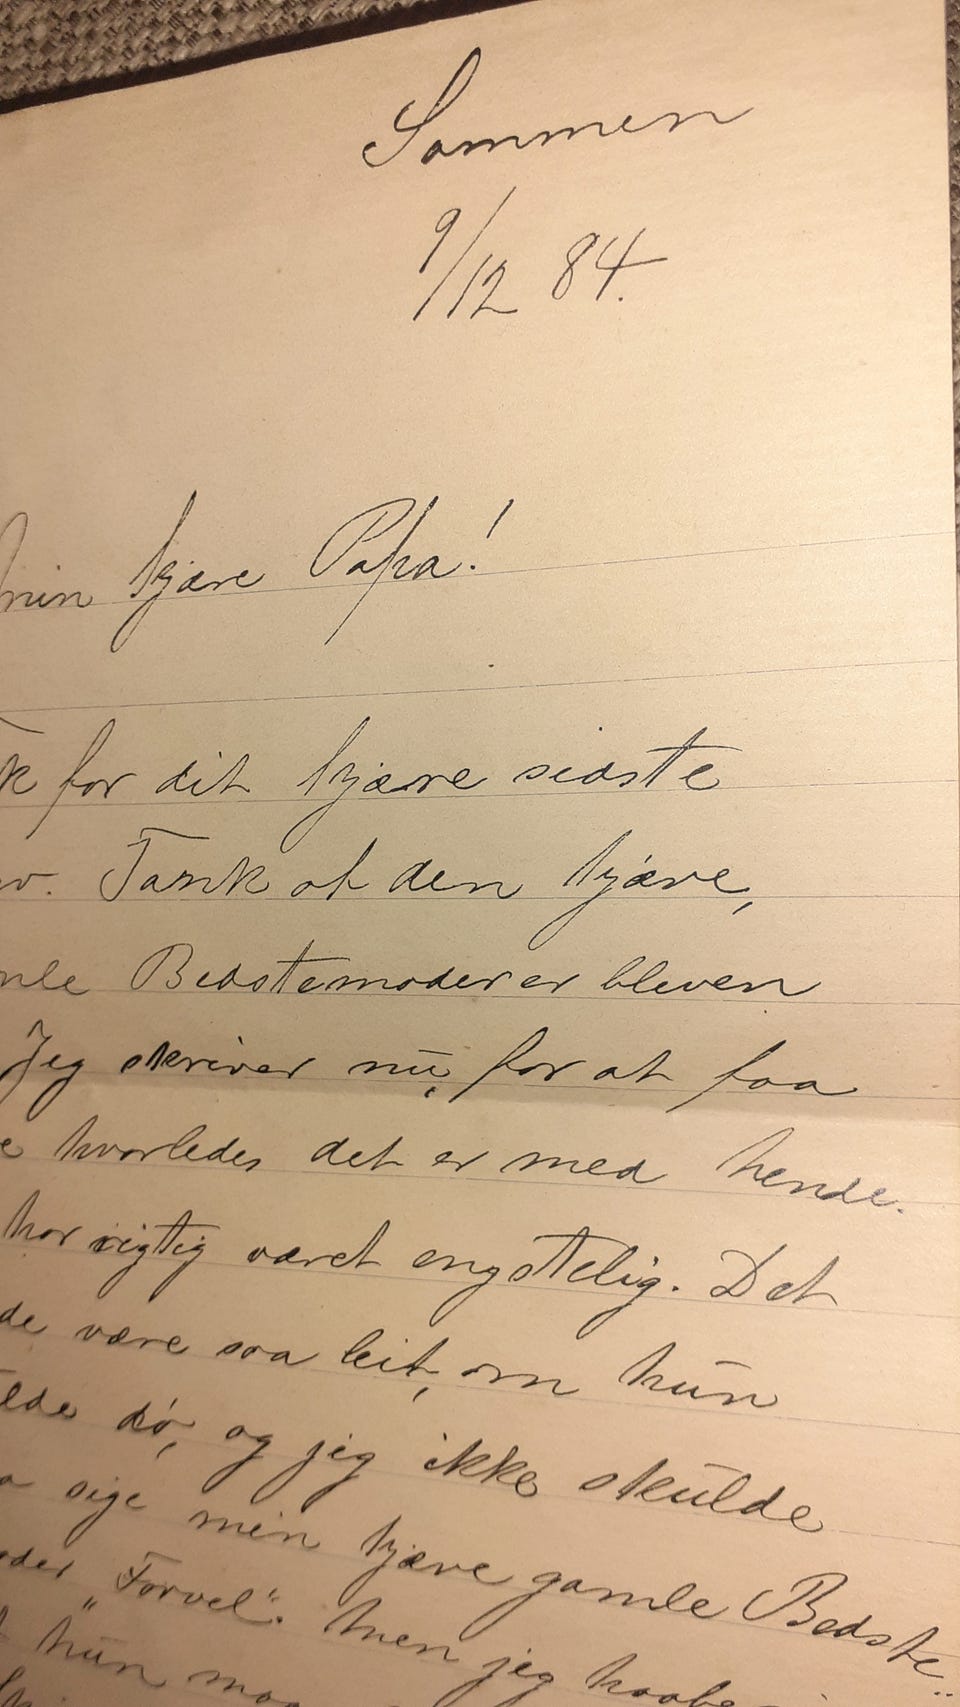 Sommen
9/12 84.
min kjære Papa!
k for dit kjære sidste
Tænk at den kjære,
mle Bedstemoder er bleven
Jeg skriver nu, for at faa
e hvorledes det er med hende.
har rigtig været engstelig. Det
de være saa leit, om hun
ulde dø, og jeg ikke skulde
sige min kjære gamle Bedste
oder „Farvel“. Men jeg haabe
t hun maa